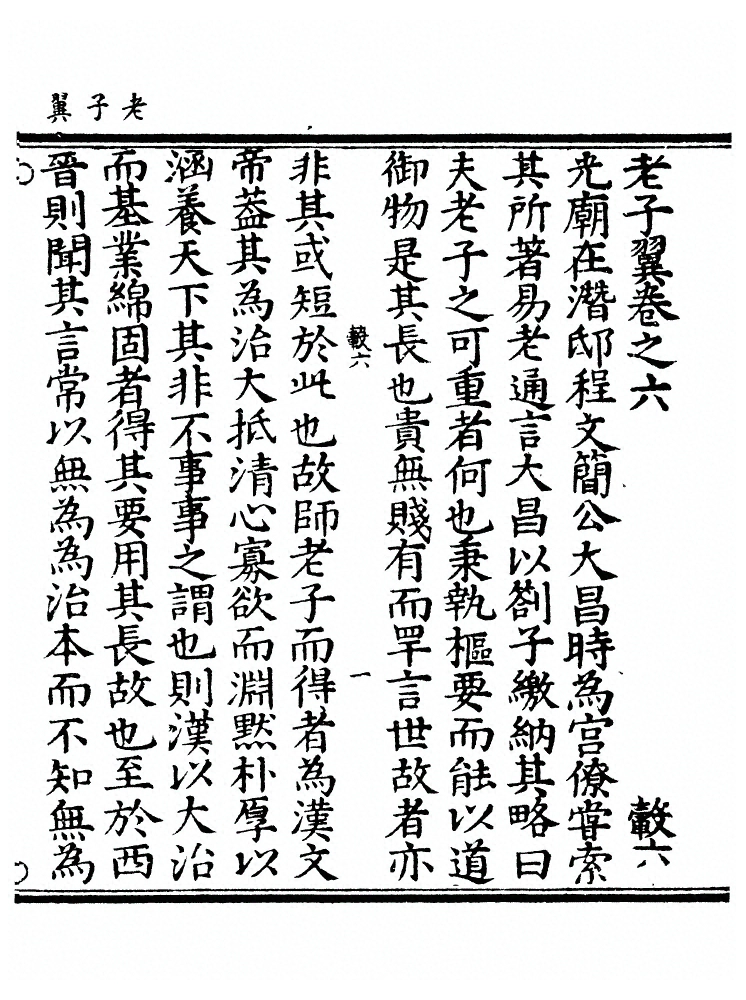 老子翼
老子翼卷之六 𣫍六
光廟在潛邸程文簡公大昌時為宮僚嘗索
其所著易老通言大昌以劄子繳納其略曰
夫老子之可重者何也秉執樞要而能以道
御物是其長也貴無賤有而罕言世故者亦
𣫍六 一
非其或短於此也故師老子而得者為漢文
帝葢其為治大抵清心寡欲而淵默朴厚以
涵養天下其非不事事之謂也則漢以大治
而基業綿固者得其要用其長故也至於西
晉則聞其言常以無為為治本而不知無為